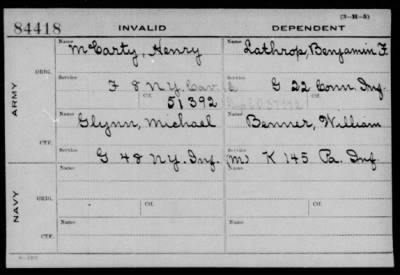 (3-H-5)
84418 INVALID DEPENDENT
Name Name
McCarty, Henry Lathrop, Benjamin F.
ORIG.
Service Service
F 8 N.Y. Cav. G 22 Conn Inf.
Ctf. Ctf.
51392
ARMY
Name Name
Glynn, Michael Benner, William
CTF.
Service Service
G 48 N.Y. Inf. (M) K 145 Pa. Inf.
NAVY
Name Name
ORIG.
Service Service
Ctf. Ctf.
Name Name
CTF.
Service Service